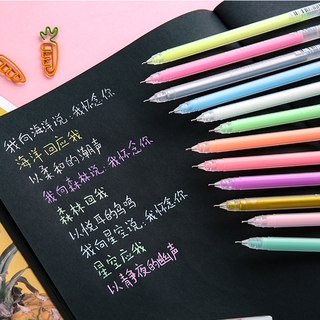 我向海洋说:我怀念你
海洋回应我
以柔和的潮声
我向森林说:我怀念你
森林回我
以悦耳的鸟鸣
我向星空说:我怀念你
星空应我
以静夜的幽声